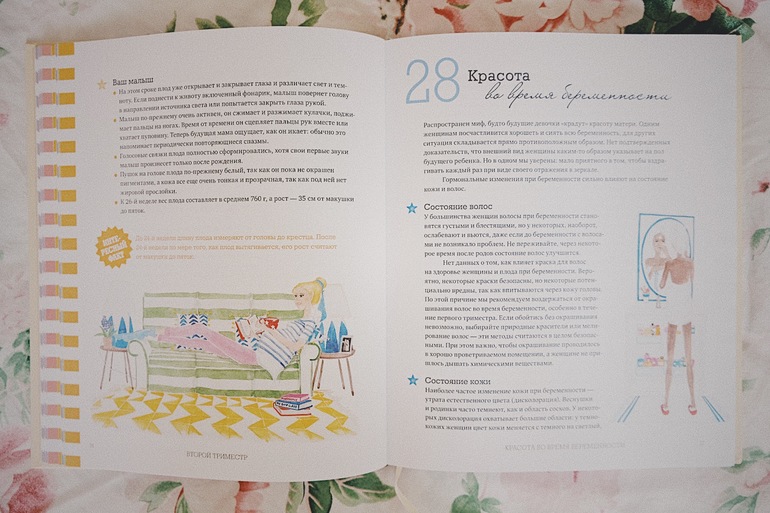 Ваш малыш
На этом сроке плод уже открывает и закрывает глаза и различает свет и тем-
ноту. Если поднести к животу включенный фонарик, малыш повернет голову
в направлении источника света или попытается закрыть глаза рукой.
Малыш по-прежнему очень активен, он сжимает и разжимает кулачки, поджи-
мает пальцы на ногах. Время от времени он сцепляет пальцы рук вместе или
хватает пуповину. Теперь будущая мама ощущает, как он икает: обычно это
напоминает периодически повторяющиеся спазмы.
Голосовые связки плода полностью сформировались, хотя свои первые звуки
малыш произнесет только после рождения.
Пушок на голове плода по-прежнему белый, так как он пока не окрашен
пигментами, а кожа все еще очень тонкая и прозрачная, так как под ней нет
жировой прослойки.
К 26-й неделе вес плода составляет в среднем 760 г, а рост — 35 см от макушки
до пяток.
ИНТЕ-
РЕСНЫЙ
ФАКТ
До 20-й недели длину плода измеряют от головы до крестца. После
20-й недели по мере того, как плод вытягивается, его рост считают
от макушки до пяток.
ВТОРОЙ ТРИМЕСТР
28 Красота
во время беременности
Распространен миф, будто будущие девочки «крадут» красоту матери. Одним
женщинам посчастливится хорошеть и сиять всю беременность; для других
ситуация складывается прямо противоположным образом. Нет подтвержденных
доказательств, что внешний вид женщины каким-то образом указывает на пол
будущего ребенка. Но в одном мы уверены: мало приятного в том, чтобы вздра-
гивать каждый раз при виде своего отражения в зеркале.
Гормональные изменения при беременности сильно влияют на состояние
кожи и волос.
Состояние волос
У большинства женщин волосы при беременности стано-
вятся густыми и блестящими, но у некоторых, наоборот,
ослабевают и вьются, даже если до беременности с волоса-
ми не возникало проблем. Не переживайте, через некото-
рое время после родов состояние волос улучшится.
Нет данных о том, как влияет краска для волос
на здоровье женщины и плода при беременности. Веро-
ятно, некоторые краски безопасны, но некоторые потен-
циально вредны, так как впитываются через кожу головы.
По этой причине мы рекомендуем воздержаться от окра-
шивания волос во время беременности, особенно в тече-
ние первого триместра. Если обойтись без окрашивания
невозможно, выбирайте природные красители или мели-
рование волос — эти методы считаются в целом безопас-
ными. При этом важно, чтобы окрашивание проводилось
в хорошо проветриваемом помещении, а женщине не при-
шлось дышать химическими веществами.
Состояние кожи
Наиболее частое изменение кожи при беременности —
утрата естественного цвета (дисколорация). Веснушки
и родинки часто темнеют, как и область сосков. У некото-
рых дисколорация охватывает большие области: у темно-
кожих женщин цвет кожи меняется с темного на светлый,
КРАСОТА ВО ВРЕМЯ БЕРЕМЕННОСТИ